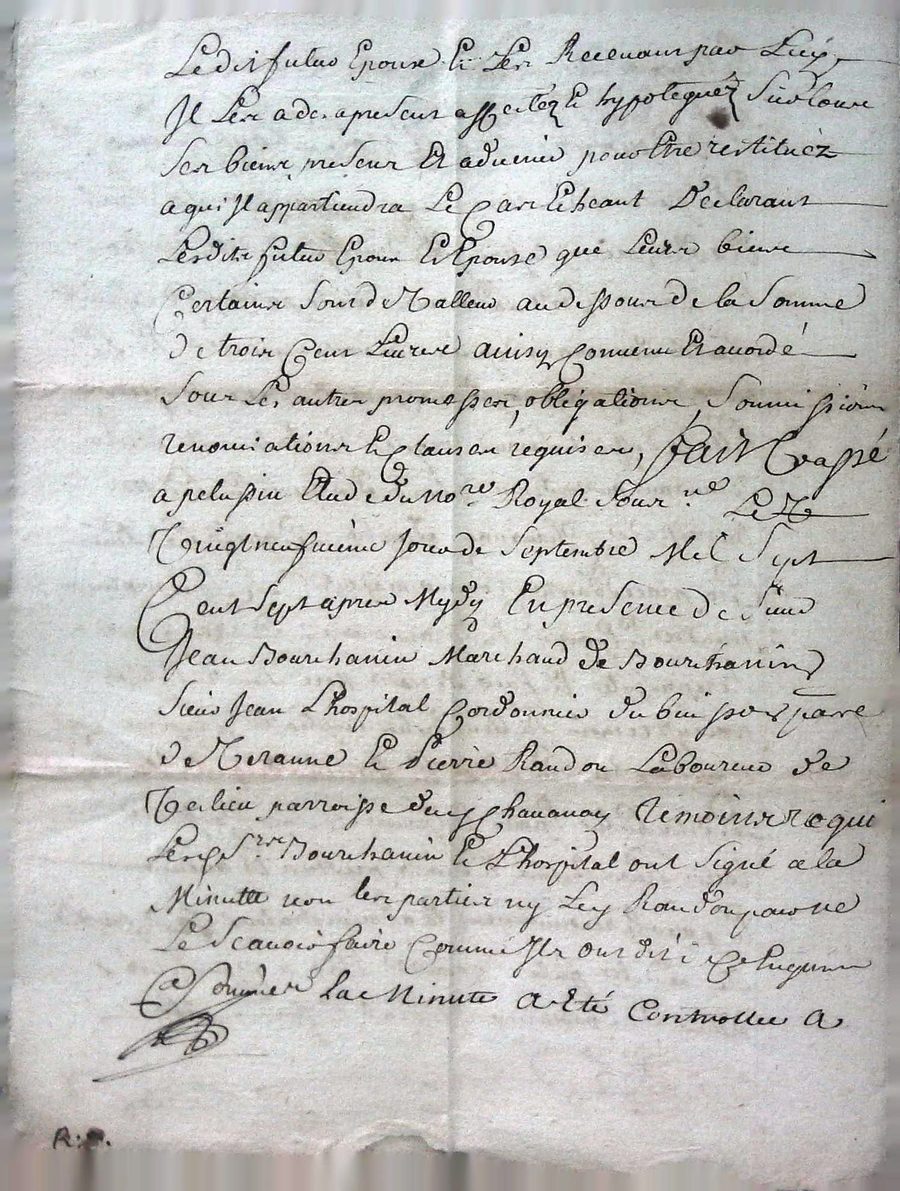 Ledit futur Epoux Et Les Recevant par Luy,
Il Les a des a present affectéz Et hypotequéz Sur tous
Ses biens presens Et advenir pour Etre restituéz
a qui Il appartiendra Le Cas Echeant Declarant
Lesdits futur Epoux Et Epouse que Leurs biens
Certains Sont de Valleur au dessous de la Somme
de trois Cent Livres ainsy Convenu Et acordé
Sous Les autres promesses, obligations, Soumissions
renonciations Et Clauses requises, Fait Et passé
a pelussin Etude du no.re Royal Sous.né Le V
Vingtneufvième Jour de Septembre Mil Sept
Cent Sept apres Mydy En presence de Sieur
Jean Bourchanin Marchand de Bourchanin
Sieur Jean L'hospital Cordonnier du parre
de Veranne Et Pierre Randon Laboureur de
Verlieu parroisse de Chavanay Temoins re qui
Lesq. S.rs Bourchanin Et L'hospital ont Signé a la
Minutte non les parties ny Ley Randon pour ne
Le Scavoir faire Comme Ils ont dit de Ce Enquis
Et Sommés La Minute a Eté Controllee a
R: